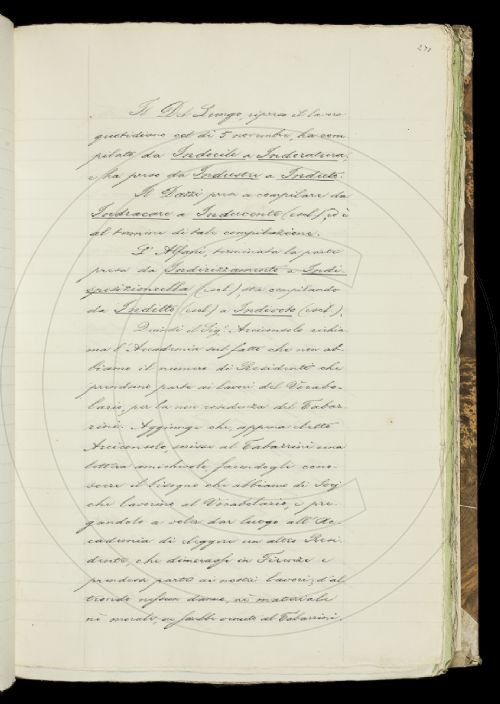 231
Il Del Lungo, ripreso il lavoro
quotidiano col dì 5 novembre, ha com-
pilato da Indocile a Indoratura,
e ha preso da Industre a
Il Dazzi prese a compilare da
Indracare a Inducente (escl.), ed è
al termine di tale compilazione.
L'Alfani, terminata la parte
presa da Indirizzamento a Indi-
sposizioncella (escl.), sta compilando
da Indetto (escl.) a Indivoto (escl.).
Quindi il Sig.r Arciconsolo richia-
ma l'Accademia sul fatto che non ab-
biamo il numero di Residenti che
prendano parte ai lavori del Vocabo-
lario, per la non residenza del Tabar-
rini. Aggiunge che, appena eletto
Arciconsolo, scrisse al Tabarrini una
lettera amichevole facendogli cono-
scere il bisogno che abbiamo di Socj
che lavorino al Vocabolario, e pre-
gandolo a voler dar luogo all'Ac-
cademia di eleggere un altro Resi-
dente, che dimorasse in Firenze e
prendesse parte ai nostri lavori; d'al-
tronde nessun danno, nè materiale
nè morale, ne sarebbe venuto al Tabarrini.